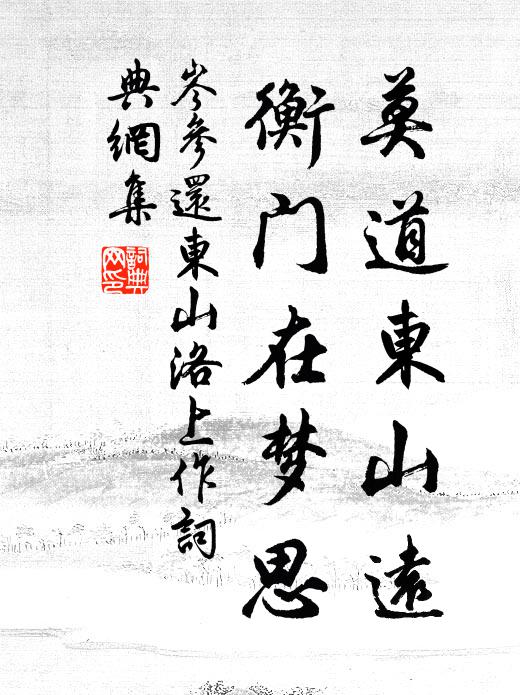 莫道東山遠
衡門在梦思
岑參還東山洛上作詞
典網集
詞典
网印